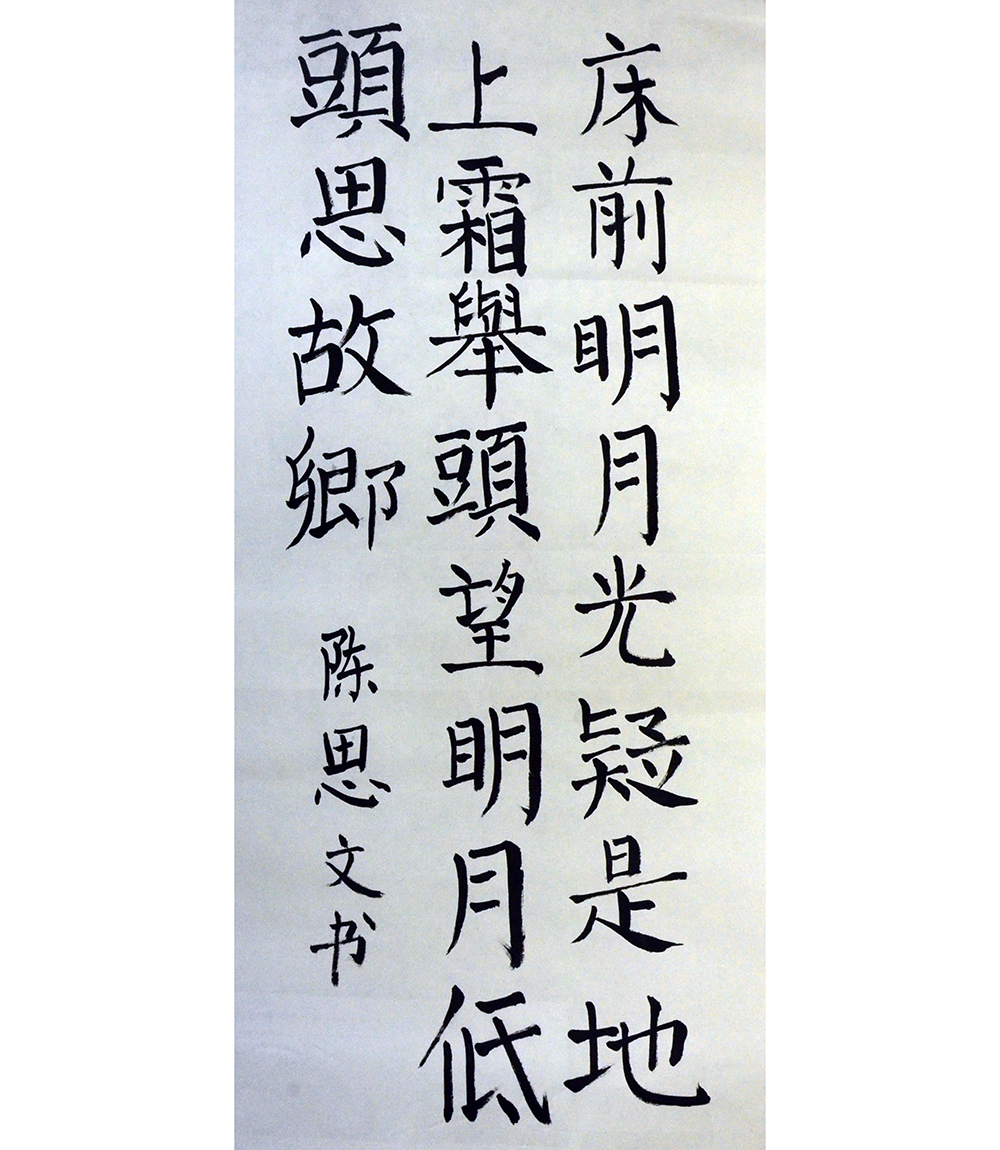 床前明月光疑是地
上霜舉頭望明月低
頭思故鄉
陈思文书